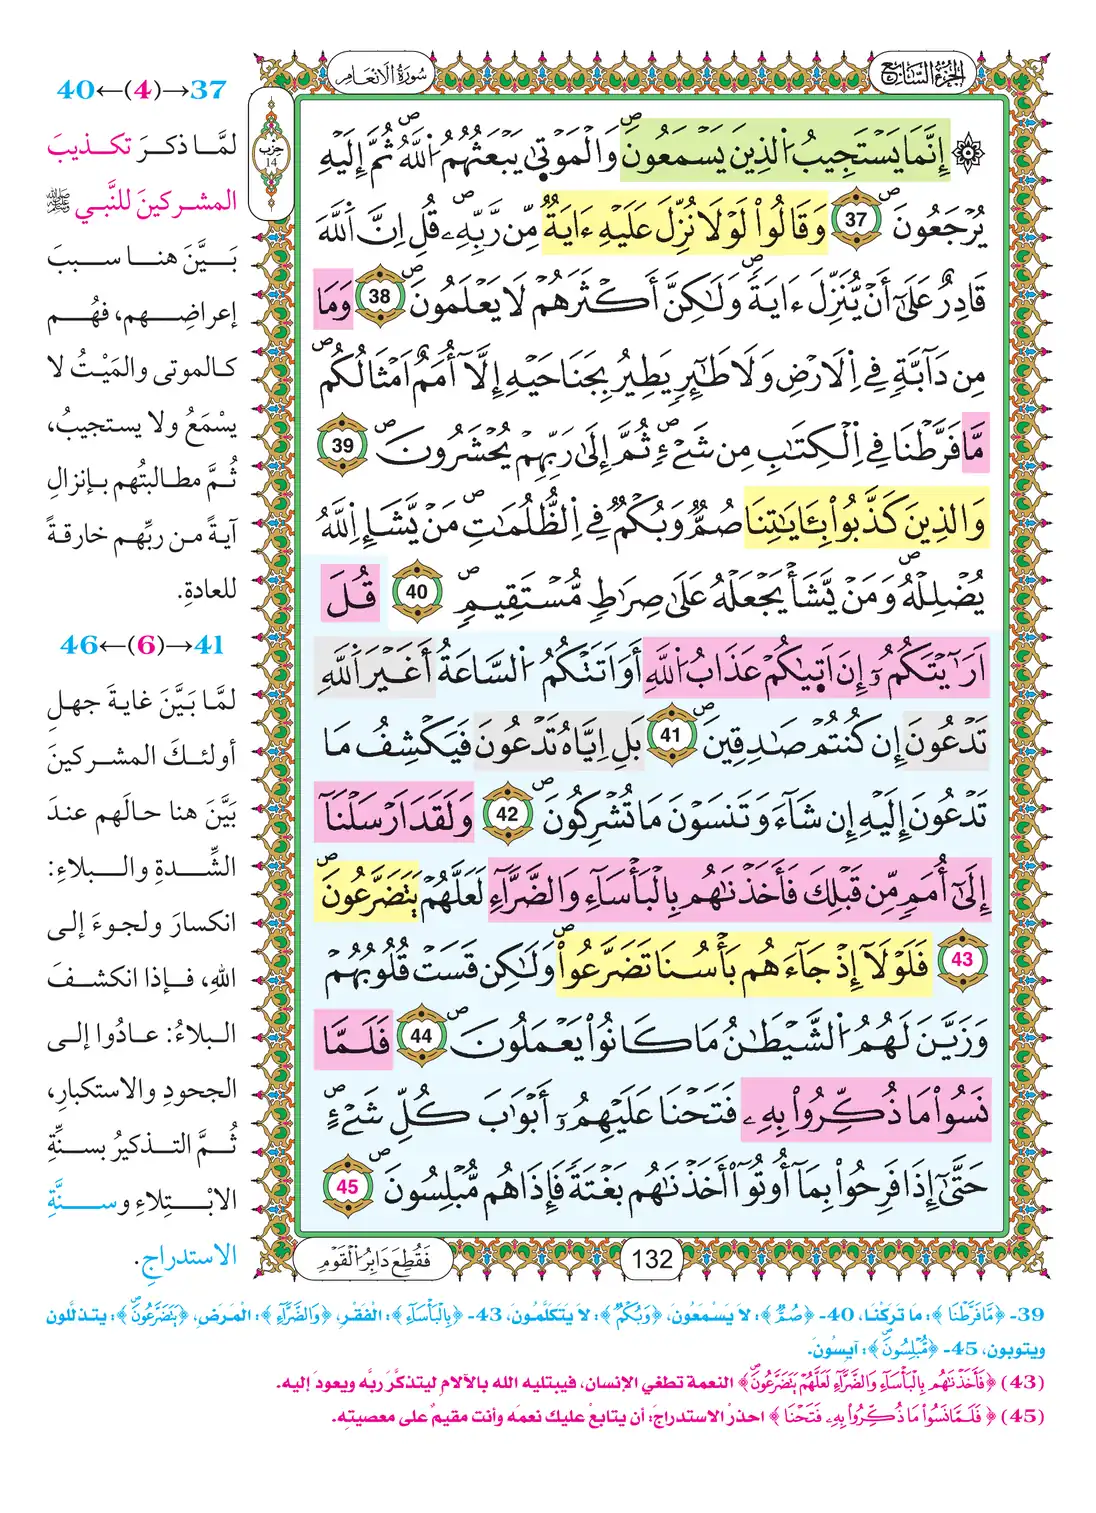 الجزء السابع
سورة الانعام
حزب
14
۞ إِنَّمَا يَسْتَجِيبُ اُ۬لذِينَ يَسْمَعُونَۖ وَالْمَوْت۪يٰ يَبْعَثُهُمُ اُ۬للَّهُۖ ثُمَّ إِلَيْهِ
يُرْجَعُونَۖ 37 وَقَالُواْ لَوْلَا نُزِّلَ عَلَيْهِ ءَايَةٞ مِّن رَّبِّهِۦۖ قُلِ اِنَّ اَ۬للَّهَ
قَادِرٌ عَلَىٰٓ أَنْ يُّنَزِّلَ ءَايَةٗۖ وَلَٰكِنَّ أَكْثَرَهُمْ لَا يَعْلَمُونَۖ 38 وَمَا
مِن دَآبَّةٖ فِے اِ۬لَارْضِ وَلَا طَٰٓئِرٖ يَطِيرُ بِجَنَاحَيْهِ إِلَّآ أُمَمٌ اَمْثَالُكُمۖ
مَّا فَرَّطْنَا فِے اِ۬لْكِتَٰبِ مِن شَےْءٖۖ ثُمَّ إِلَىٰ رَبِّهِمْ يُحْشَرُونَۖ 39
وَالذِينَ كَذَّبُواْ بِـَٔايَٰتِنَا صُمّٞ وَبُكْمٞ فِے اِ۬لظُّلُمَٰتِۖ مَنْ يَّشَإِ اِ۬للَّهُ
يُضْلِلْهُۖ وَمَنْ يَّشَأْ يَجْعَلْهُ عَلَىٰ صِرَٰطٖ مُّسْتَقِيمٖۖ 40 قُلَ
اَرَٰٓيْتَكُمُۥٓ إِنَ اَت۪يٰكُمْ عَذَابُ اُ۬للَّهِ أَوَ اَتَتْكُمُ اُ۬لسَّاعَةُ أَغَيْرَ اَ۬للَّهِ
تَدْعُونَ إِن كُنتُمْ صَٰدِقِينَۖ 41 بَلِ اِيَّاهُ تَدْعُونَ فَيَكْشِفُ مَا
تَدْعُونَ إِلَيْهِ إِن شَآءَ وَتَنسَوْنَ مَا تُشْرِكُونَۖ 42 وَلَقَدَ اَرْسَلْنَآ
إِلَىٰٓ أُمَمٖ مِّن قَبْلِكَ فَأَخَذْنَٰهُم بِالْبَأْسَآءِ وَالضَّرَّآءِ لَعَلَّهُمْ يَتَضَرَّعُونَۖ
43 فَلَوْلَآ إِذْ جَآءَهُم بَأْسُنَا تَضَرَّعُواْۖ وَلَٰكِن قَسَتْ قُلُوبُهُمْ
وَزَيَّنَ لَهُمُ اُ۬لشَّيْطَٰنُ مَا كَانُواْ يَعْمَلُونَۖ 44 فَلَمَّا
نَسُواْ مَا ذُكِّرُواْ بِهِۦ فَتَحْنَا عَلَيْهِمُۥٓ أَبْوَٰبَ كُلِّ شَےْءٍۖ
حَتَّىٰٓ إِذَا فَرِحُواْ بِمَآ أُوتُوٓاْ أَخَذْنَٰهُم بَغْتَةٗ فَإِذَا هُم مُّبْلِسُونَۖ 45
132
فَقُطِعَ دَابِرُ اُ۬لْقَوْمِ
37→(4)←40
لمَّا ذكرَ تكذيبَ
المشركينَ للنَّبي ﷺ
بَيَّنَ هنا سببَ
إعراضِهم، فهُم
كالموتى والمَيْتُ لا
يسْمَعُ ولا يستجيبُ،
ثُمَّ مطالبتُهم بإنزالِ
آيةً من ربِّهم خارقةً
للعادةِ.
41→(6)←46
لمَّا بَيَّنَ غايةَ جهلِ
أولئكَ المشركينَ
بَيَّنَ هنا حالَهم عندَ
الشِّدةِ والبلاءِ:
انكسارَ ولجوءَ إلى
اللهِ، فإذا انكشفَ
البلاءُ: عادُوا إلى
الجحودِ والاستكبارِ،
ثُمَّ التذكيرُ بسنَّةِ
الابْتِلاءِ وسنَّةِ
الاستدراجِ.
39- ﴿مَّا فَرَّطْنَا﴾: مَا تَرَكْنَا، 40- ﴿صُمّٞ﴾: لاَ يَسْمَعُونَ، ﴿وَبُكْمٞ﴾: لاَ يَتَكَلَّمُونَ، 43- ﴿بِالْبَأْسَآءِ﴾: الْفَقْرِ، ﴿وَالضَّرَّآءِ﴾: الْمَرَضِ، ﴿يَتَضَرَّعُونَۖ﴾: يتذلَّلون
ويتوبون، 45- ﴿مُّبْلِسُونَۖ﴾: آيِسُونَ.
(43) ﴿فَأَخَذْنَٰهُم بِالْبَأْسَآءِ وَالضَّرَّآءِ لَعَلَّهُمْ يَتَضَرَّعُونَۖ﴾ النعمة تطغي الإنسان، فيبتليه الله بالآلام ليتذكَّرَ ربَّه ويعودَ إليه.
(45) ﴿فَلَمَّا نَسُواْ مَا ذُكِّرُواْ بِهِۦ فَتَحْنَا﴾ احذرْ الاستدراجَ: أن يتابعَ عليك نعمَه وأنت مقيمٌ على معصيتِه.